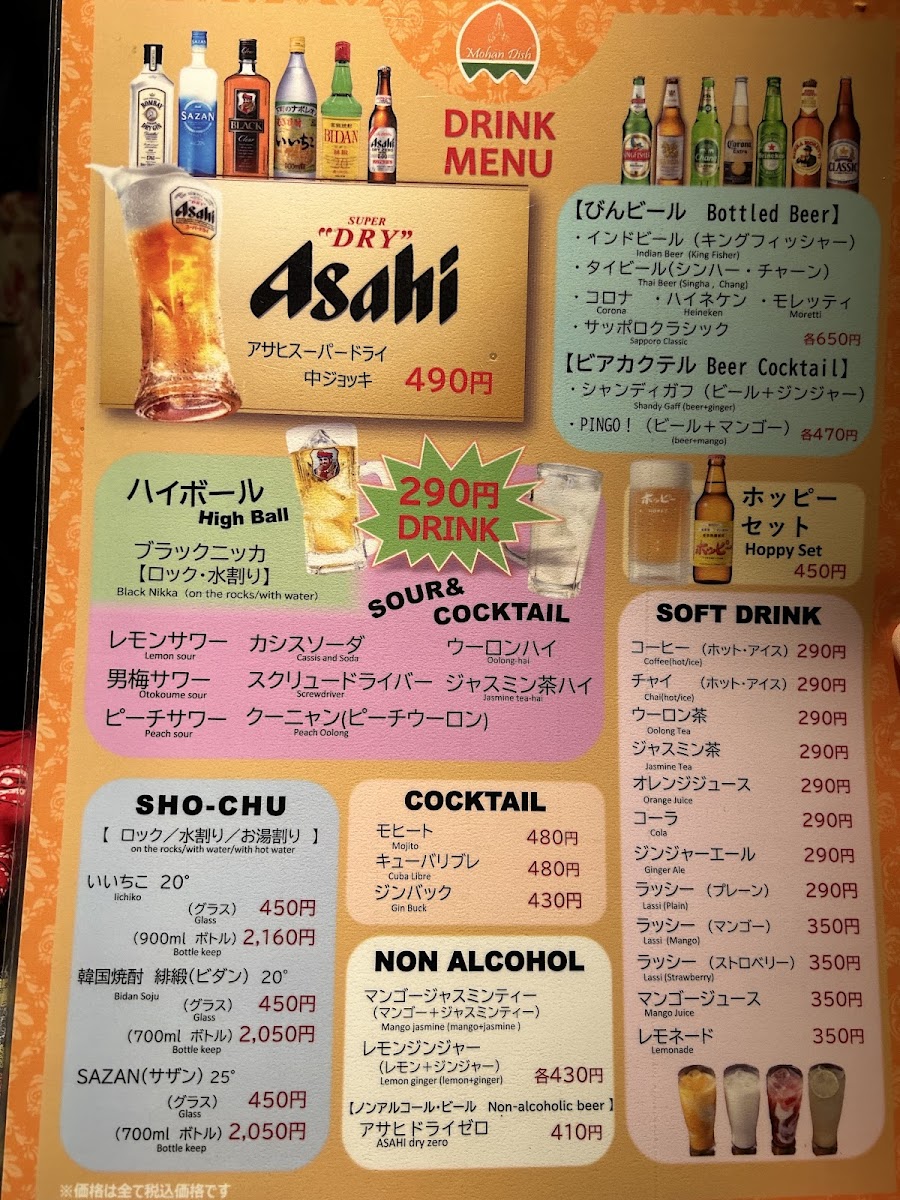 Mohan Dish
DRINK
MENU
BOMBAY
SAZAN
BLACK
Clear
いいちこ
BIDAN
Asahi
Chang
Corona
Extra
Heineken
CLASSIC
Asahi
SUPER
"DRY"
Asahi
アサヒスーパードライ
中ジョッキ 490円
【びんビール Bottled Beer】
・インドビール（キングフィッシャー）
Indian Beer (King Fisher)
・タイビール(シンハー・チャーン)
Thai Beer (Singha , Chang)
・コロナ ・ハイネケン ・モレッティ
Corona Heineken Moretti
・サッポロクラシック
Sapporo Classic
各650円
【ビアカクテル Beer Cocktail】
・シャンディガフ（ビール＋ジンジャー）
Shandy Gaff (beer+ginger)
・PINGO！（ビール＋マンゴー）
(beer+mango)
各470円
ハイボール
High Ball
ブラックニッカ
【ロック・水割り】
Black Nikka（on the rocks/with water）
290円
DRINK
SOUR&
COCKTAIL
レモンサワー カシスソーダ ウーロンハイ
Lemon sour Cassis and Soda Oolong-hai
男梅サワー スクリュードライバー ジャスミン茶ハイ
Otokoume sour Screwdriver Jasmine tea-hai
ピーチサワー クーニャン(ピーチウーロン)
Peach sour Peach Oolong
ホッピー
ホッピー
ホッピー
セット
Hoppy Set
450円
SOFT DRINK
コーヒー（ホット・アイス）290円
Coffee(hot/ice)
チャイ （ホット・アイス）290円
Chai(hot/ice)
ウーロン茶 290円
Oolong Tea
ジャスミン茶 290円
Jasmine Tea
オレンジジュース 290円
Orange Juice
コーラ 290円
Cola
ジンジャーエール 290円
Ginger Ale
ラッシー（プレーン） 290円
Lassi (Plain)
ラッシー（マンゴー） 350円
Lassi (Mango)
ラッシー（ストロベリー）350円
Lassi (Strawberry)
マンゴージュース 350円
Mango Juice
レモネード 350円
Lemonade
SHO-CHU
【 ロック／水割り／お湯割り 】
on the rocks/with water/with hot water
いいちこ 20°
Iichiko
（グラス） 450円
Glass
（900ml ボトル）2,160円
Bottle keep
韓国焼酎 緋緞(ビダン) 20°
Bidan Soju
（グラス） 450円
Glass
（700ml ボトル）2,050円
Bottle keep
SAZAN(サザン) 25°
（グラス） 450円
Glass
（700ml ボトル）2,050円
Bottle keep
COCKTAIL
モヒート 480円
Mojito
キューバリブレ 480円
Cuba Libre
ジンバック 430円
Gin Buck
NON ALCOHOL
マンゴージャスミンティー
（マンゴー＋ジャスミンティー）
Mango jasmine (mango+jasmine )
レモンジンジャー
（レモン＋ジンジャー）
Lemon ginger (lemon+ginger)
各430円
【ノンアルコール・ビール Non-alcoholic beer 】
アサヒドライゼロ 410円
ASAHI dry zero
※価格は全て税込価格です